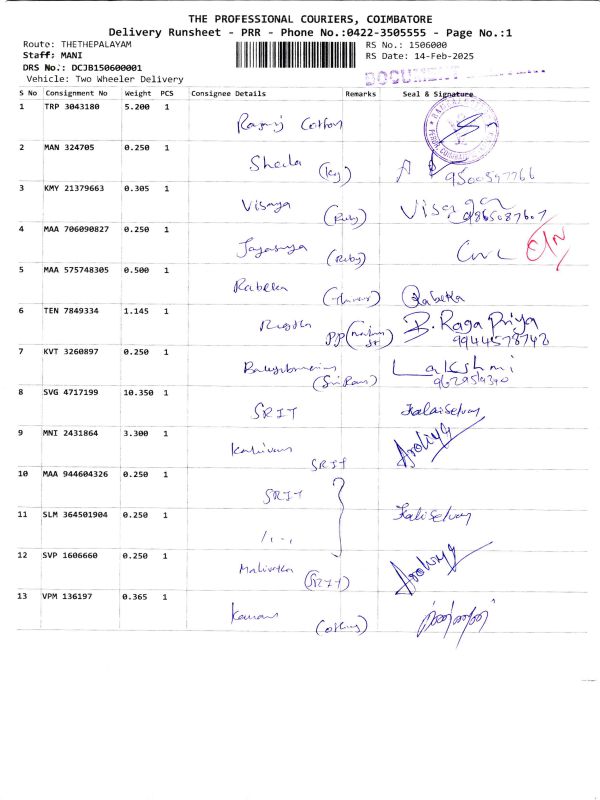 THE PROFESSIONAL COURIERS, COIMBATORE
Delivery Runsheet - PRR - Phone No.:0422-3505555 - Page No.:1
Route: THETHEPALAYAM RS No.: 1506000
Staff: MANI RS Date: 14-Feb-2025
DRS No.: DCJB150600001
Vehicle: Two Wheeler Delivery DOCUMENT
S No Consignment No Weight PCS Consignee Details Remarks Seal & Signature
1 TRP 3043180 5.200 1
2 MAN 324705 0.250 1
Sheela 9500597766
3 KMY 21379663 0.305 1
Visaya (Ruby) 9865087607
4 MAA 706090827 0.250 1
Jayasurya (Ruby)
5 MAA 575748305 0.500 1
Rabeka Rabetka
6 TEN 7849334 1.145 1
B. Raga Priya
9944578742
7 KVT 3260897 0.250 1
(Sri Ram) Lakshmi
8 SVG 4717199 10.350 1
SRIT Kalaiselvay
9 MNI 2431864 3.300 1
SRIT
10 MAA 944604326 0.250 1
SRIT
11 SLM 364501904 0.250 1
Kaliselvay
12 SVP 1606660 0.250 1
(SRIT)
13 VPM 136197 0.365 1